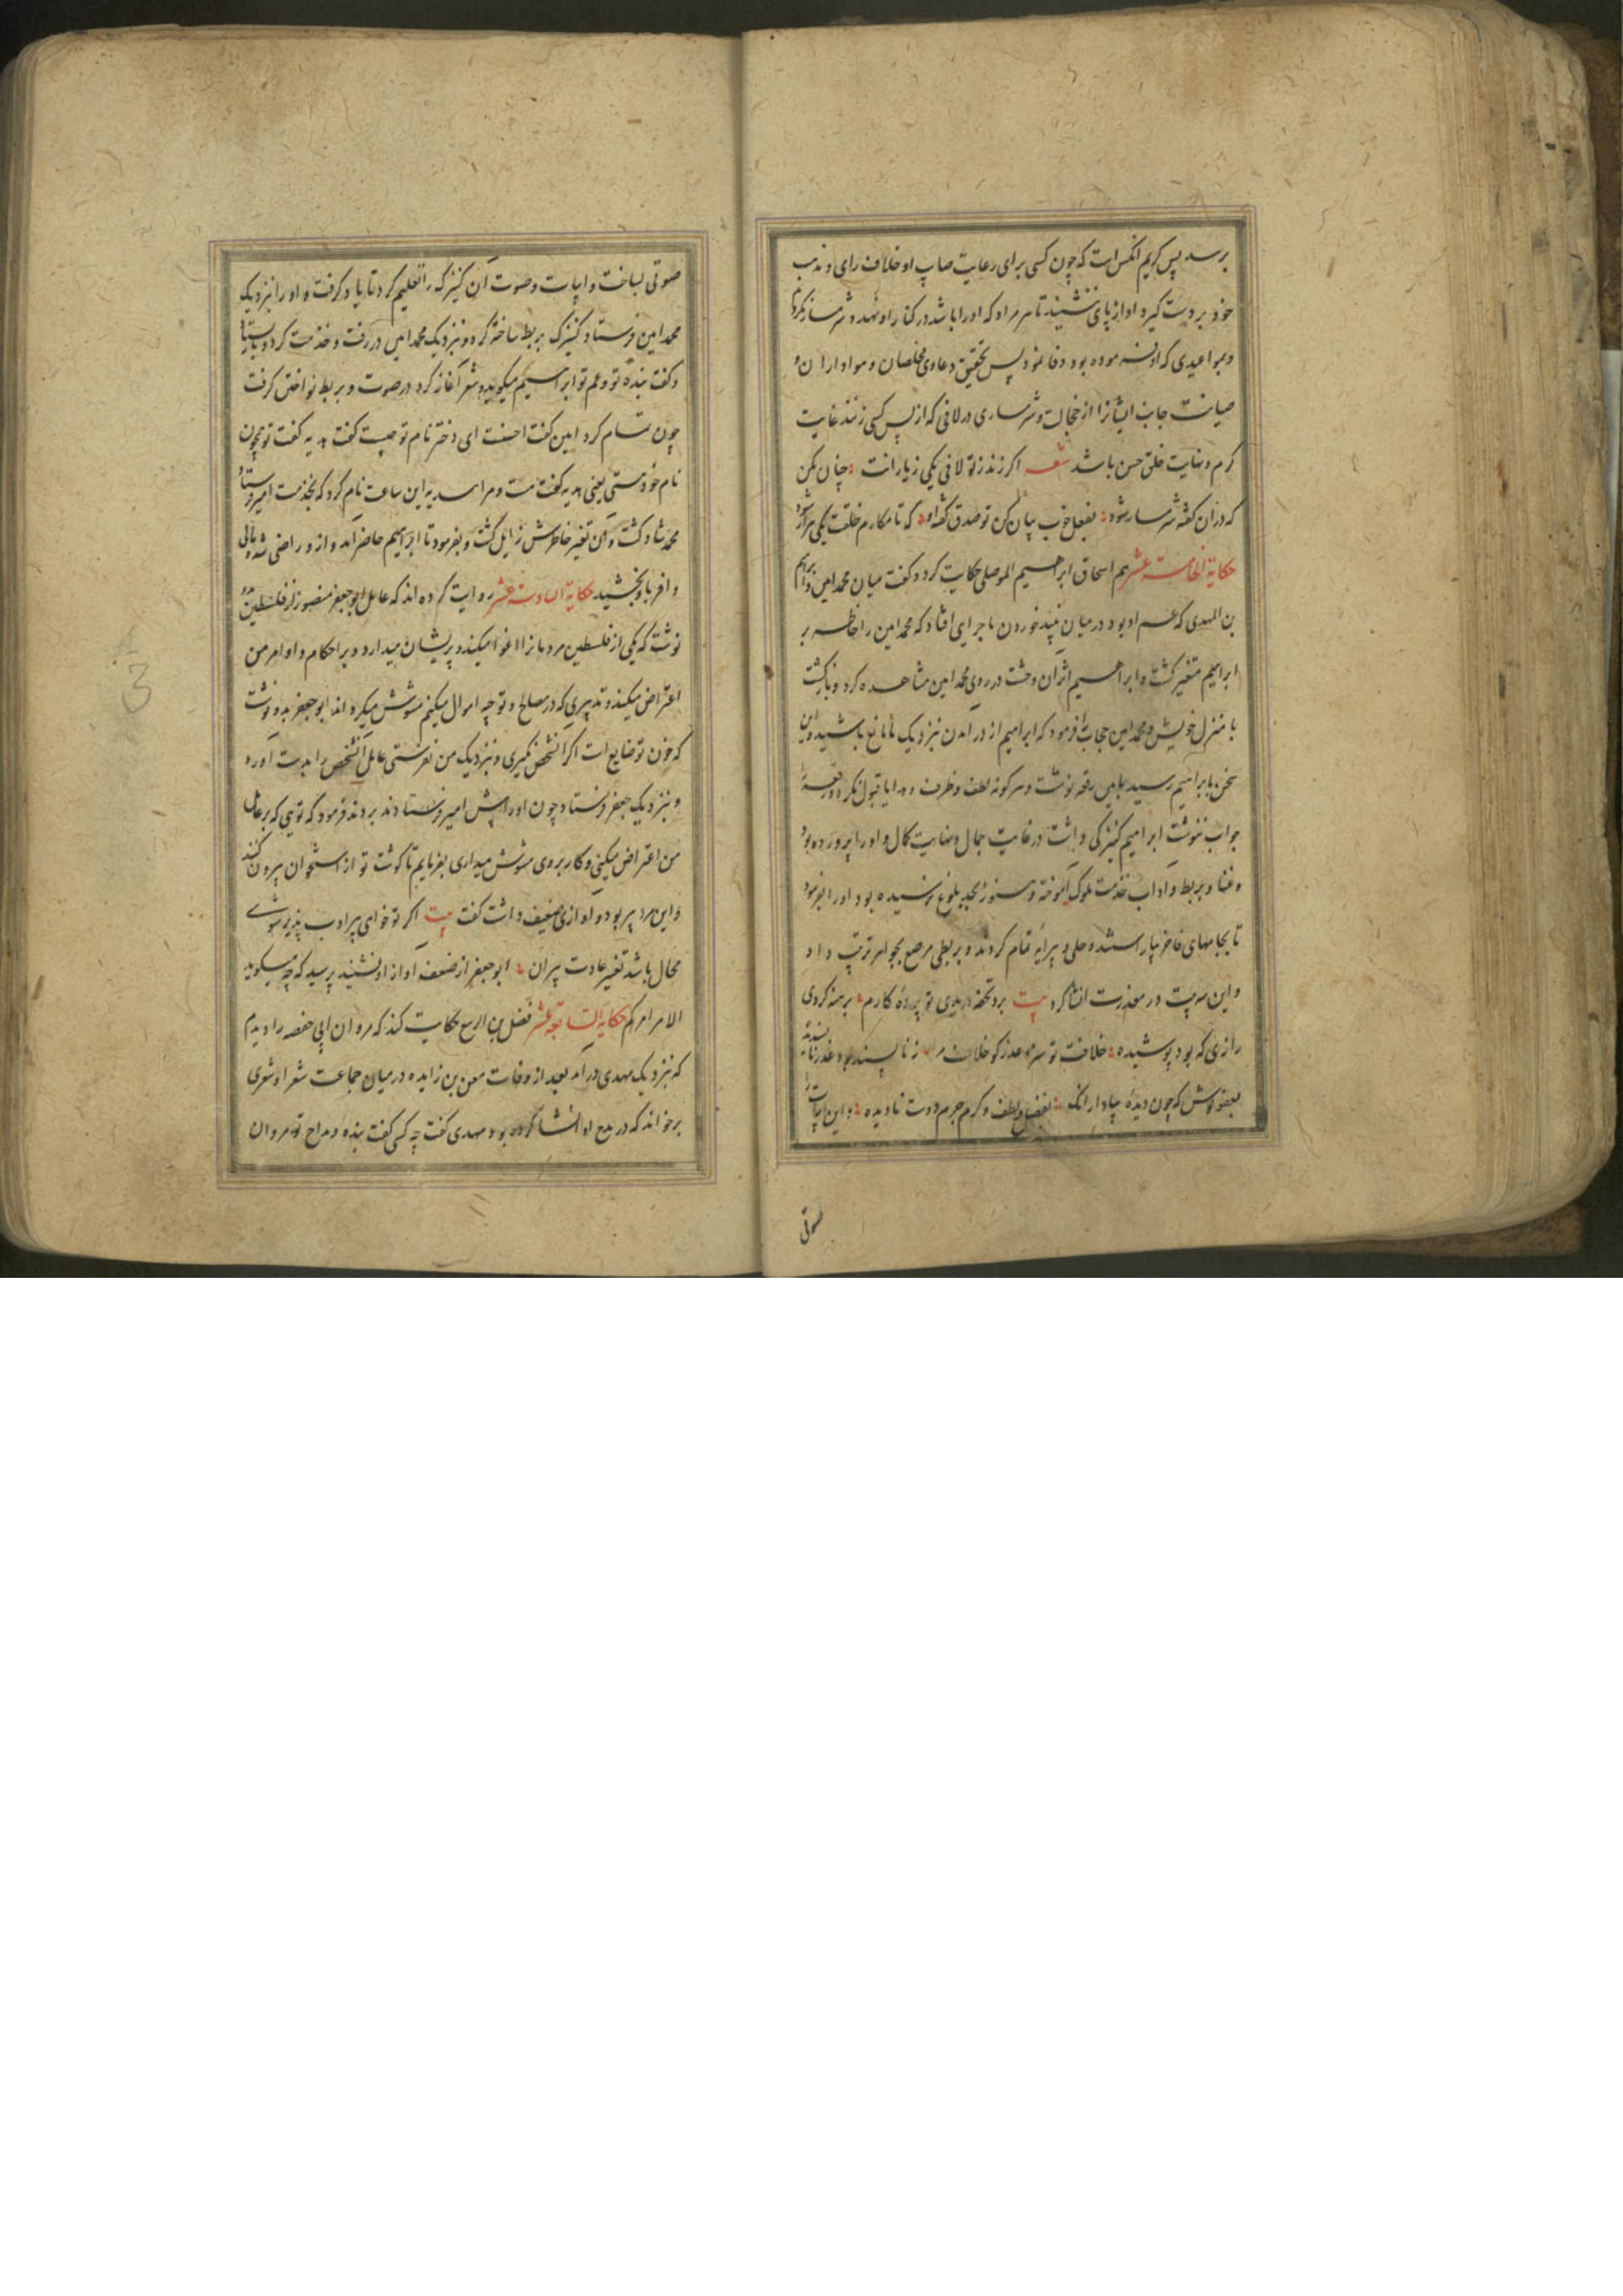 برسد پس کریم انکس است که چون کسی برای رعایت صاپ او خلاف رای و مذهب
خود بر دست کیرد او از پای ننشیند تا هر مراد که او را باشد در کنار او نهد و شرمسار نکرداند
و بمواعیدی که او فرموده بود وفا نمود پس تحقیق دعاوی مخلصان و موادارا ن و
صیانت جانب ایشانرا از خجالت و شرمساری در لافی که از پس کسی زنند غایت
کرم و نهایت خلق حسن باشد شعر اکر زند ز تو لافی یکی ز یارانت چنان مکن
که در ان کفته شرمسار شود بفعل خوب بیان کن تو صدق کفته او که تا مکارم خلقت یکی هزار شود
حکایة الخامسة عشر هم اسحاق ابراهیم الموصلی حکایت کرد و کفت میان محمد امین و ابراهیم
بن المهدی که عم او بود در میان نبیذ خوردن ماجرای افتاد که محمد امین را خاطر بر
ابراهیم متغیر کشت و ابراهیم اثر ان وحشت در روی محمد امین مشاهده کرد و باز کشت
با منزل خویش و محمد امین حجاب را فرمود که ابراهیم از در امدن نزدیک ما مانع باشید و این
سخن بابراهیم رسید بامین رقعه نوشت و هر کونه لطف و ظرف و هدایا قبول نکرد و رقعه را
جواب ننوشت ابراهیم کنیزکی داشت در غایت جمال و نهایت کمال و او را پرورده بود
و غنا و بربط و اداب خدمت ملوک اموخته و هنوز بحد بلوغ نرسیده بود او را بفرمود
تا بجامهای فاخر بیاراستند و حلی و پیرایه تمام کردند و بربطی مرصع بجواهر ترتیب داد
و این سه بیت در معذرت انشا کرد بیت برد تحفه دریدی تو پرده کارم برهنه کردی
رازی که بود پوشیده خلافت تو سزد عذر کو خلاف
بعفو کوش که چون دیده بفضل و لطف و کرم جرم دوست نادیده و این ابیات را
صوتی
صوتی بساخت و ابیات و صوت ان کنیزک را تعلیم کرد تا یاد کرفت و او را نزدیک
محمد امین فرستاد کنیزک بربط ساخته کرد و نزدیک محمد امین در رفت و خدمت کرد و بایستاد
و کفت بنده تو و عم تو ابراهیم میکوید و شعر آغاز کرد در صوت و بربط نواختن کرفت
چون تمام کرد امین کفت احسنت ای دختر نام تو چیست کفت هدیه کفت تو همچون
نام خودستی یعنی هدیه کفت مت و مرا هدیه این ساعت نام کرد که بخدمت امیر فرستاد
محمد شاد کشت و ان تغیر خاطرش زایل کشت و بفرمود تا ابراهیم حاضر آمد و از و راضی شد و مالی
وافر باو بخشید حکایة السادسة عشر روایت کرده اند که عامل ابو جعفر منصور از فلسطین بدو
نوشت که یکی از فلسطین مردمانرا اغوا میکند و پریشان میدارد و بر احکام و اوامر من
اعتراض میکند و تدبیری که در مصالح و توجیه اموال میکنم مشوش میکرداند ابو جعفر بدو نوشت
که خون تو ضایع است اکر آن شخص نکیری و نزدیک من نفرستی عامل آن شخص را بدست اورد
و نزدیک جعفر فرستاد چون او را پیش امیر فرستادند بردند فرمود که توی که بر عامل
من اعتراض میکنی و کار بر وی مشوش میداری بفرمایم تا کوشت تو از استخوان بیرون کنند
و این مرد پیر بود و اوازی ضعیف داشت کفت بیت اکر تو خوای پیر ادب پذیر شوی
محال باشد تغییر عادت پیران ابو جعفر از ضعف آواز او نشنید پرسید که چه میکوید
الامر امرکم حکایة السابعة عشر فضل بن الربیع حکایت کند که مروان ابی حفصه را دیدم
که نزدیک مهدی در آمد بعد از وفات معن بن زایده در میان جماعت شعرا و شعری
برخواند که در مدح او انشا کرده بود مهدی کفت چه کسی کفت بنده و مداح تو مروان